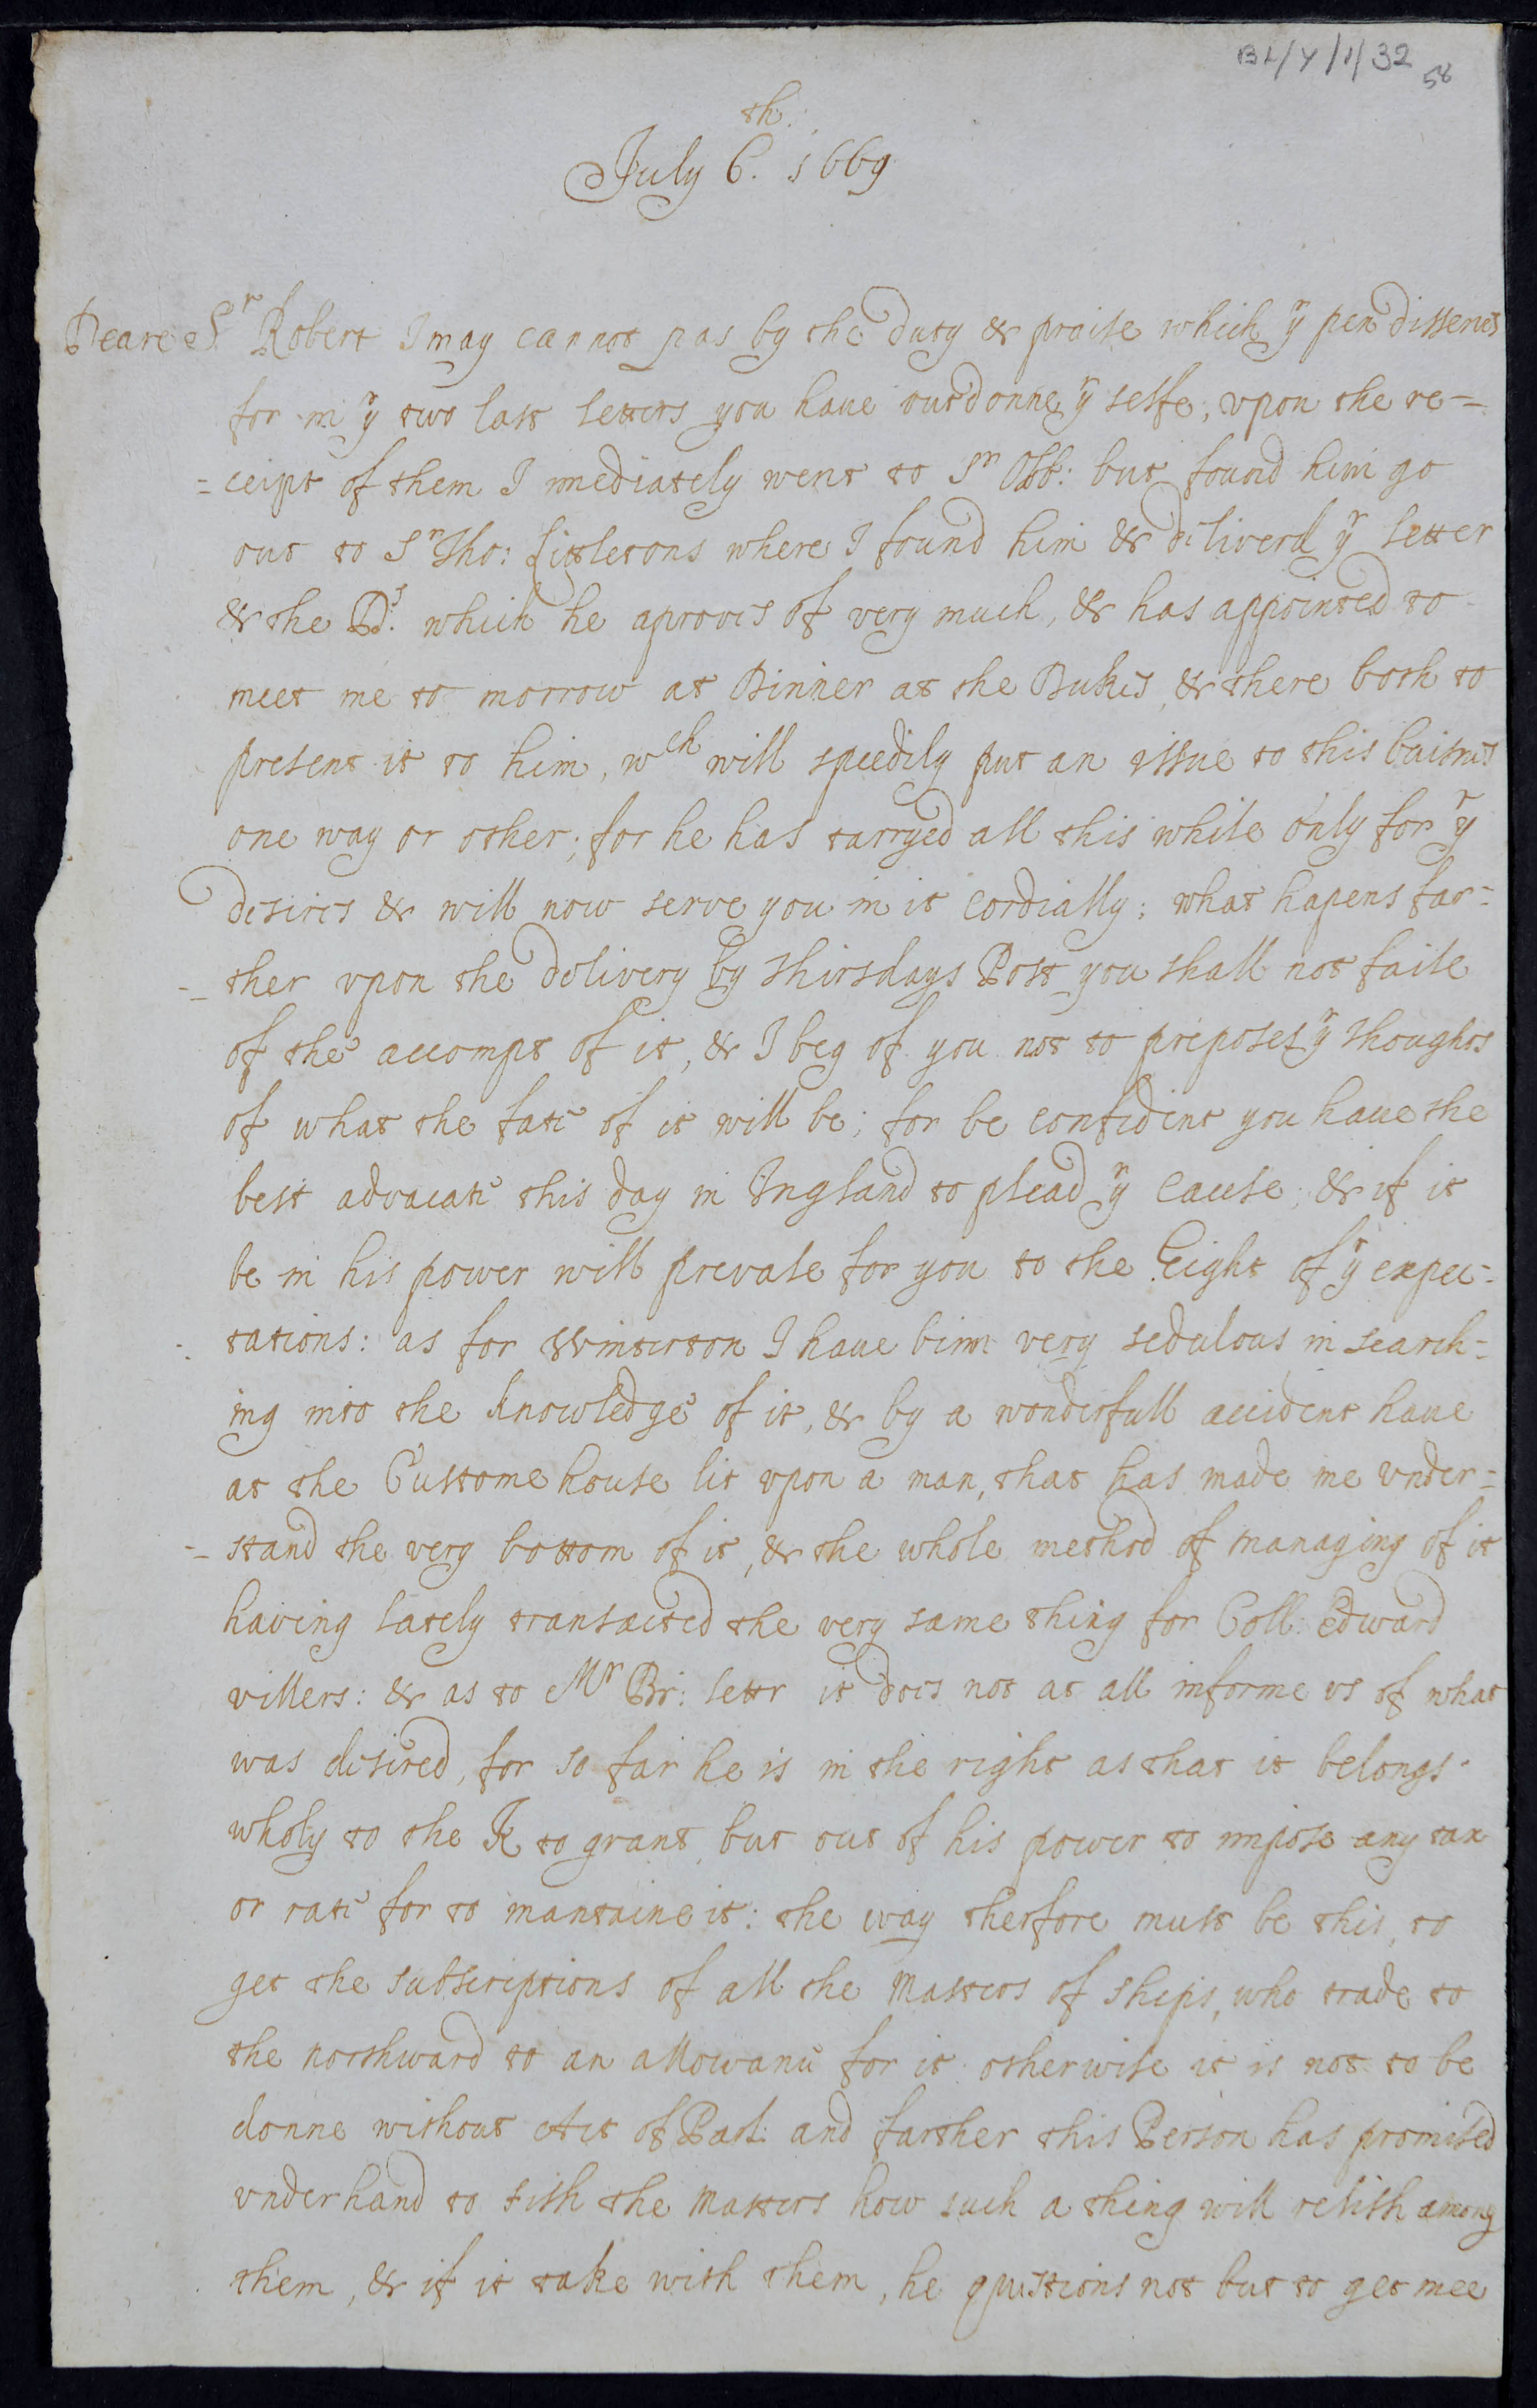 BL/Y/1/32 58
July 6th. 1669
Deare Sr Robert I may cannot pas by the duty & praise which yr pen disserves
for in yr two last letters you haue outdonne yr selfe; vpon the re=
=ceipt of them I imediately went to Sr Obb: but found him go
out to Sr Tho: Littletons where I found him & diliverd yr letter
& the Ps. which he aproves of very much, & has appointed to
meet me to morrow at Dinner at the Dukes, & there both to
present it to him, wch will speedily put an issue to this buisnes
one way or other; for he has tarryed all this while only for yr
desires & will now serve you in it cordially; what hapens far=
=ther vpon the delivery by Thirsdays Post you shall not faile
of the accompt of it, & I beg of you not to preposes yr thoughts
of what the fate of it will be; for be confident you haue the
best advacate this day in Ingland to plead yr cause; & if it
be in his power will prevale for you to the height of yr expec=
tations: as for Winterton I haue binn very sedulous in search=
ing into the knowledge of it, & by a wonderfull accident haue
at the Custome house lit vpon a man, that has made me vnder=
=stand the very bottom of it, & the whole method of managing of it
having lately transacted the very same thing for Coll: Edward
villers: & as to Mr Br: lettr it does not at all informe vs of what
was desired, for so far he is in the right as that it belongs
wholy to the K to grant, but out of his power to impose any tax
or rate for to mantaine it: the way therfore must be this, to
get the subscriptions of all the Masters of ships, who trade to
the northward to an allowance for it otherwise it is not to be
donne without Act of Parl: and farther this Person has promised
vnderhand to fish the Masters how such a thing will relish among
them, & if it take with them, he questions not but to get mee